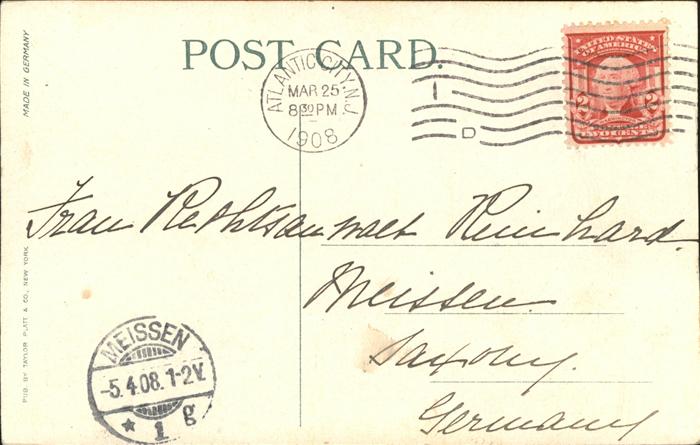 POST CARD.
MADE IN GERMANY
PUB. BY TAYLOR, PLATT & CO., NEW YORK
ATLANTIC CITY, N.J.
MAR 25
8 30 PM
1908
1
D
UNITED STATES
OF AMERICA
2 2
TWO CENTS
Frau Rechtsanwalt Reinhard.
Meissen.
Saxony.
Germany
MEISSEN
-5.4.08.1-2V.
* 1 g